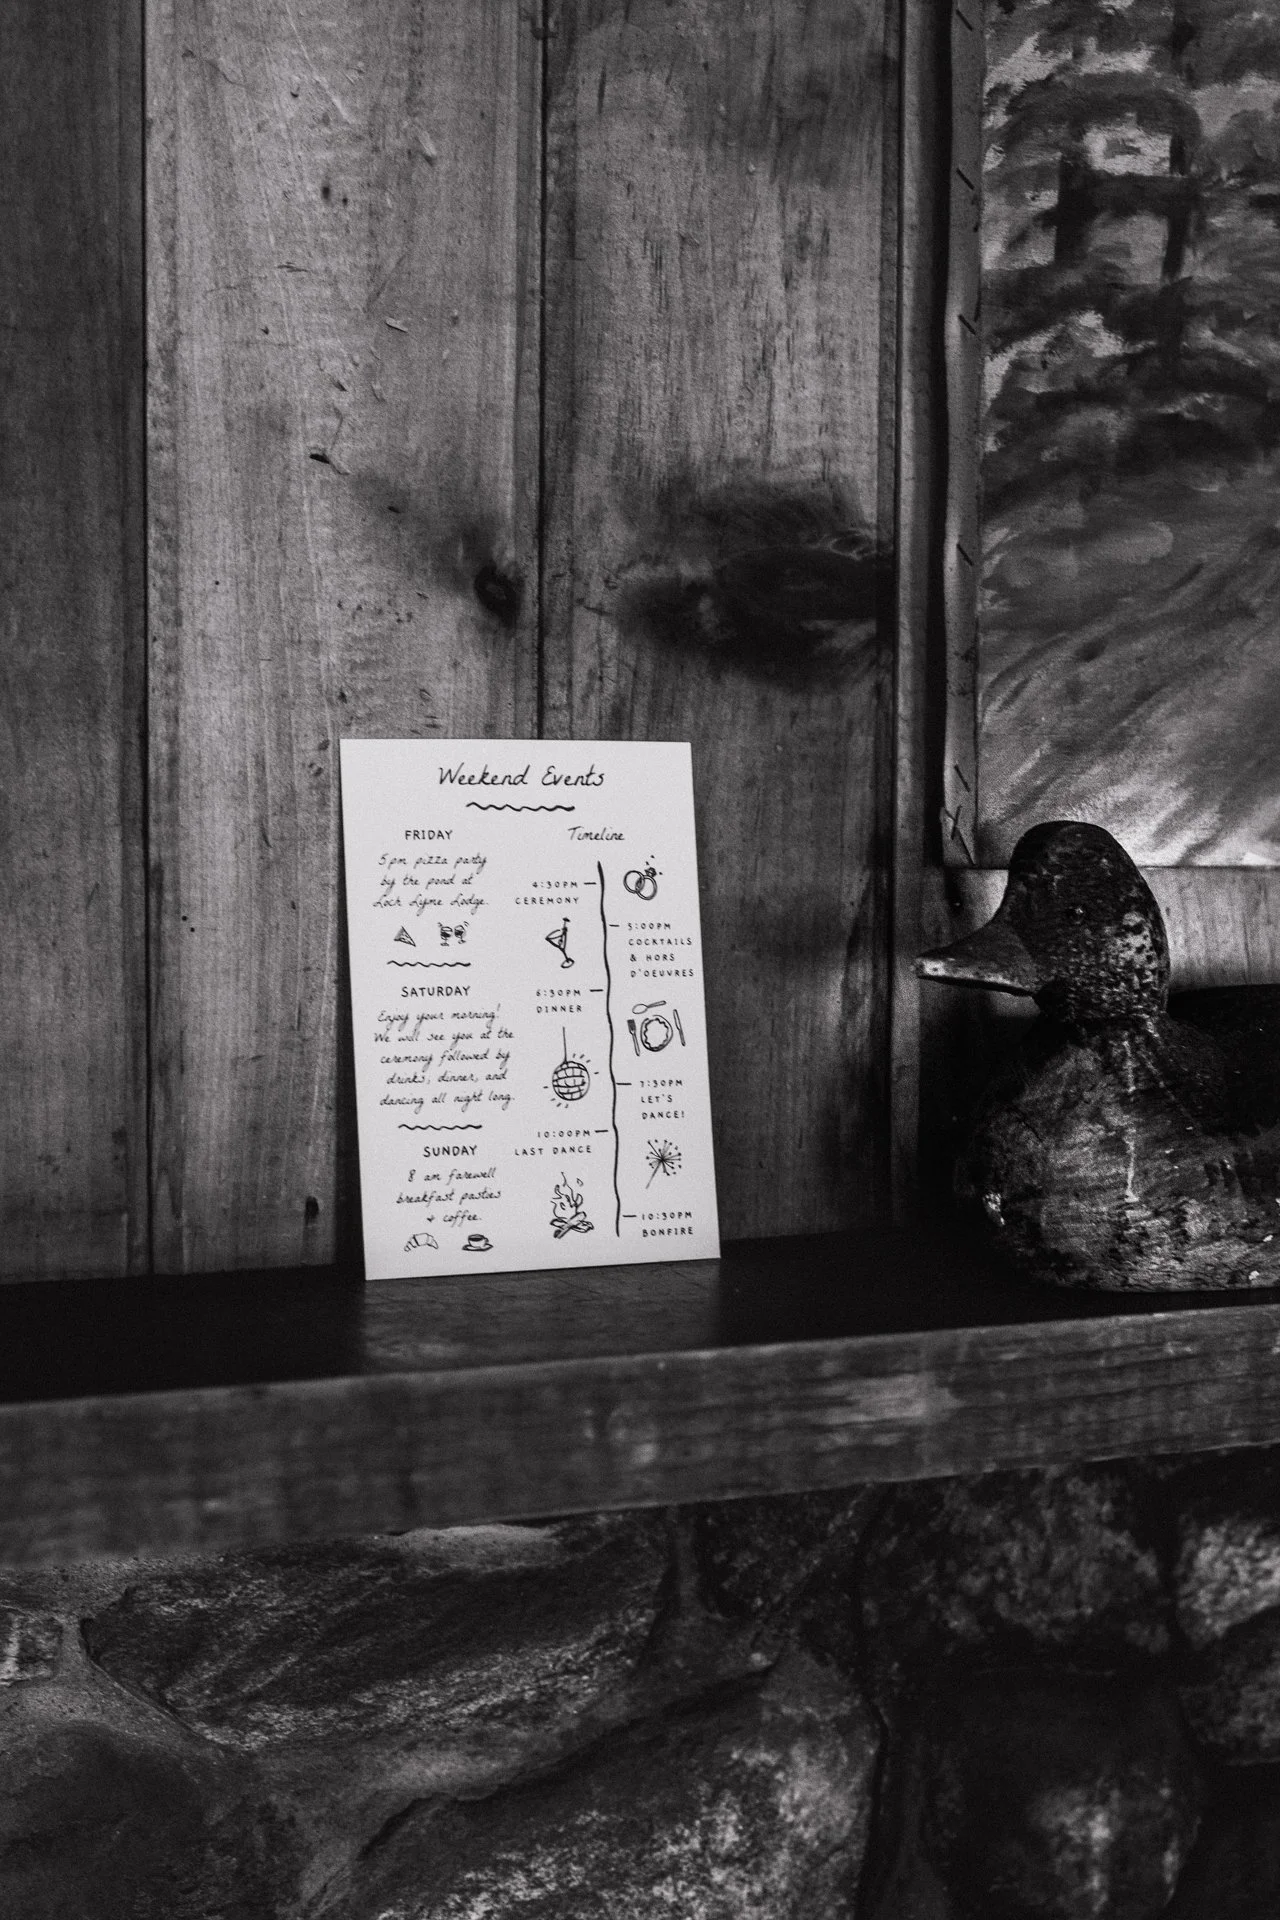 Weekend Events
FRIDAY
5pm pizza party
by the pond at
Loch Lyme Lodge.
SATURDAY
Enjoy your morning!
We will see you at the
ceremony followed by
drinks, dinner, and
dancing all night long.
SUNDAY
8 am farewell
breakfast pasties
+ coffee.
Timeline
4:30PM
CEREMONY
5:00PM
COCKTAILS
& HORS
D'OEUVRES
6:30PM
DINNER
7:30PM
LET'S
DANCE!
10:00PM
LAST DANCE
10:30PM
BONFIRE